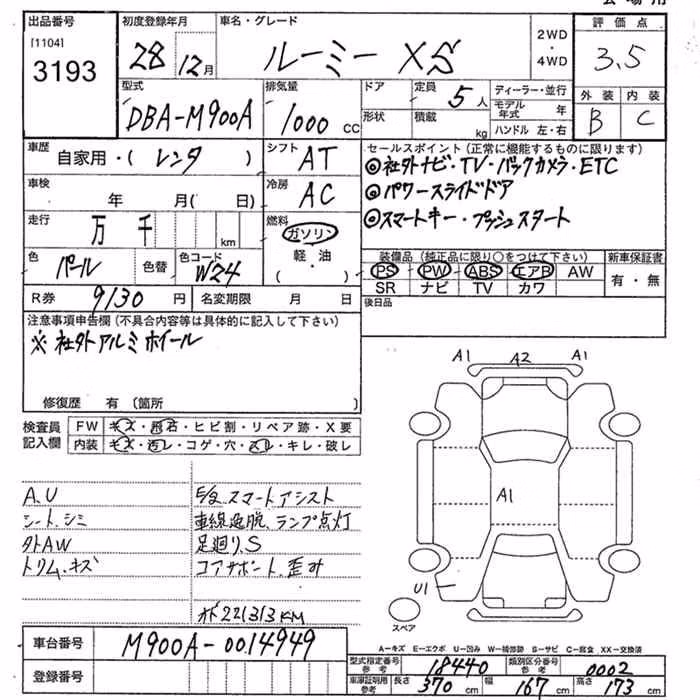 会場用
出品番号
[1104]
3193
初度登録年月
28年 12月
車名・グレード
ルーミー XS
2WD
・
4WD
評価点
3.5
型式
DBA-M900A
排気量
1000 cc
ドア
形状
定員 5人
積載 kg
ディーラー・並行
モデル年式 年
ハンドル 左・右
外装 内装
B C
車歴
自家用・( レンタ )
シフト AT
セールスポイント (正常に機能するものに限ります)
◎社外ナビ・TV・バックカメラ・ETC
◎パワースライドドア
◎スマートキー・プッシュスタート
車検
年 月( 日)
冷房 AC
走行
万 千 km
燃料
ガソリン
軽・油
( )
色
パール
色替
色コード
W24
装備品 (純正品に限り○をつけて下さい)
PS PW ABS エアB AW
SR ナビ TV カワ
新車保証書
有・無
R券 9130 円 名変期限 月 日
後日品
注意事項申告欄 (不具合内容等は具体的に記入して下さい)
※社外アルミホイール
修復歴 有 (箇所 )
検査員
記入欄
FW キズ・飛石・ヒビ割・リペア跡・X要
内装 キズ・汚レ・コゲ・穴・スレ・キレ・破レ
A1 A2 A1
A1
U1
スペア
A.U
シート、シミ
外AW
トリム・キズ
スマートアシスト
車線逸脱、ランプ点灯
足廻り、S
コアサポート、歪み
221313KM
A-キズ E-エクボ U-凹み W-補修跡 S-サビ C-腐食 XX-交換済
車台番号 M900A-0014949
登録番号
型式指定番号 参考 18440 類別区分番号 参考 0002
車庫証明用 参考 長さ 370 cm 幅 167 cm 高さ 173 cm